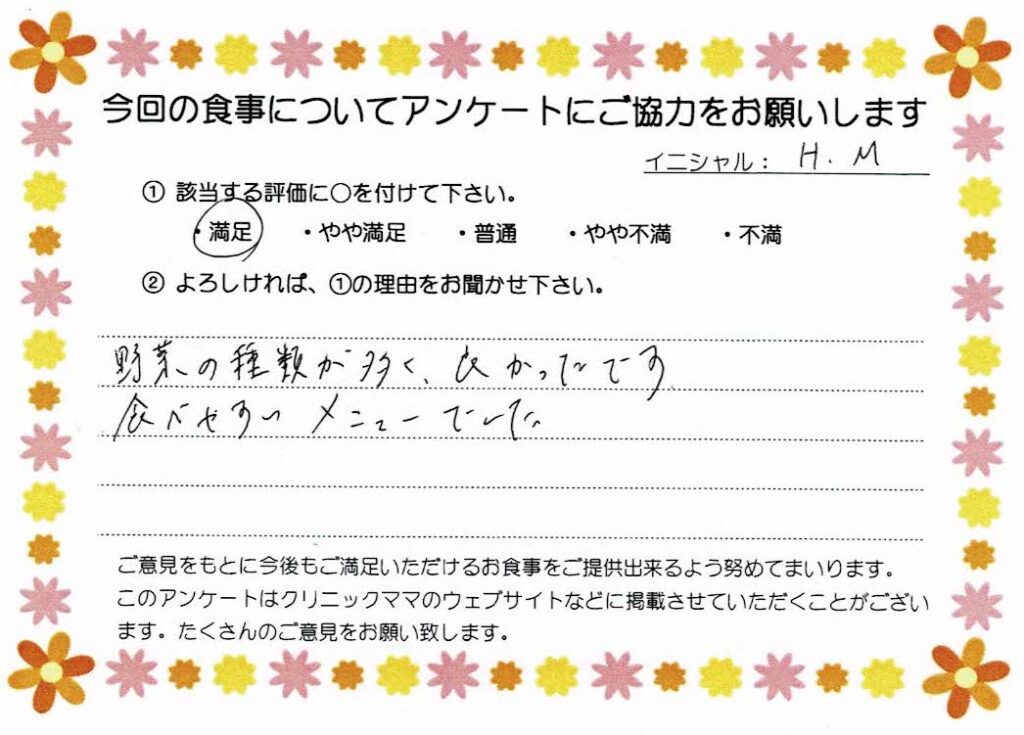 今回の食事についてアンケートにご協力をお願いします
イニシャル： H. M
① 該当する評価に〇を付けて下さい。
・満足 ・やや満足 ・普通 ・やや不満 ・不満
② よろしければ、①の理由をお聞かせ下さい。
野菜の種類が多く、良かったです
食べやすい メニューでした。
ご意見をもとに今後もご満足いただけるお食事をご提供出来るよう努めてまいります。
このアンケートはクリニックママのウェブサイトなどに掲載させていただくことがござい
ます。たくさんのご意見をお願い致します。